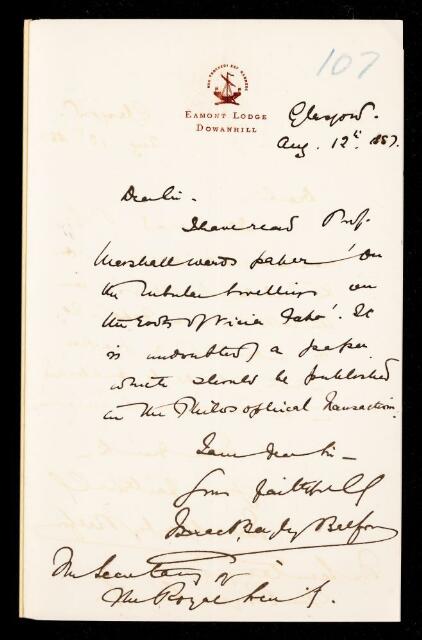 107
EAMONT LODGE
DOWANHILL
Glasgow.
Aug. 12th. 1887.
Dear Sir.
I have read Prof.
Marshall Wards paper 'On
the tubular swellings on
the Roots of Vicia Faba'. It
is undoubtedly a paper
which should be published
in the Philosophical Transactions.
I am dear Sir
Yours faithfully
Isaac Bayley Balfour
The Secretary
The Royal Society.